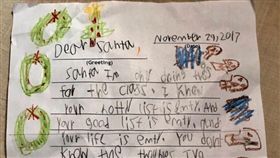 November 29, 2017
Dear Santa,
(Greeting)
Santa I'm only doing this
for the class. I knew
your notty list is emty. And
your good list is emty. And
your life is emty. You dont
know the